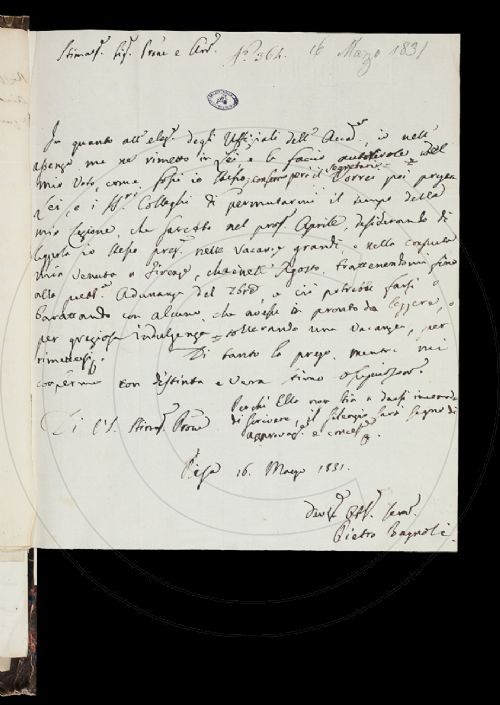 Stimat.o Sig. Prone e Am.o
N.o 364.
16 Marzo 1831
In quanto all' elez.e degli Uffiziali dell' Accad.a io nell'
assenza me ne rimetto in Lei, e la faccio del
mio Voto, come fossi io stesso, per il Segretario Vorrei poi pregar
Lei e i Sig.ri Colleghi di permutarmi il tempo della
mia Lezione, che sarebbe nel pros. Aprile, desiderando di
leggerla io stesso nelle vacanze grandi e nella consueta
mia venuta a Firenze, che è nell' Agosto, trattenendomi fino
alla pubb.a Adunanza del e ciò potrebbe farsi o
barattando con alcuno, che avesse in pronto da leggere, o
per graziosa indulgenza tollerando una vacanza, per
rimetterla.
Di tanto la prego, mentre mi
confermo con distinta e vera stima
Di V.S. Stimat.o Prone
Perchè Ella non stia a darsi incomodo
di scrivere, il silenzio sarà segno di
approvaz.e e concess.e
Pisa 16. Marzo 1831.
Dev.o Obb.o Serv.e
Pietro Bagnoli.